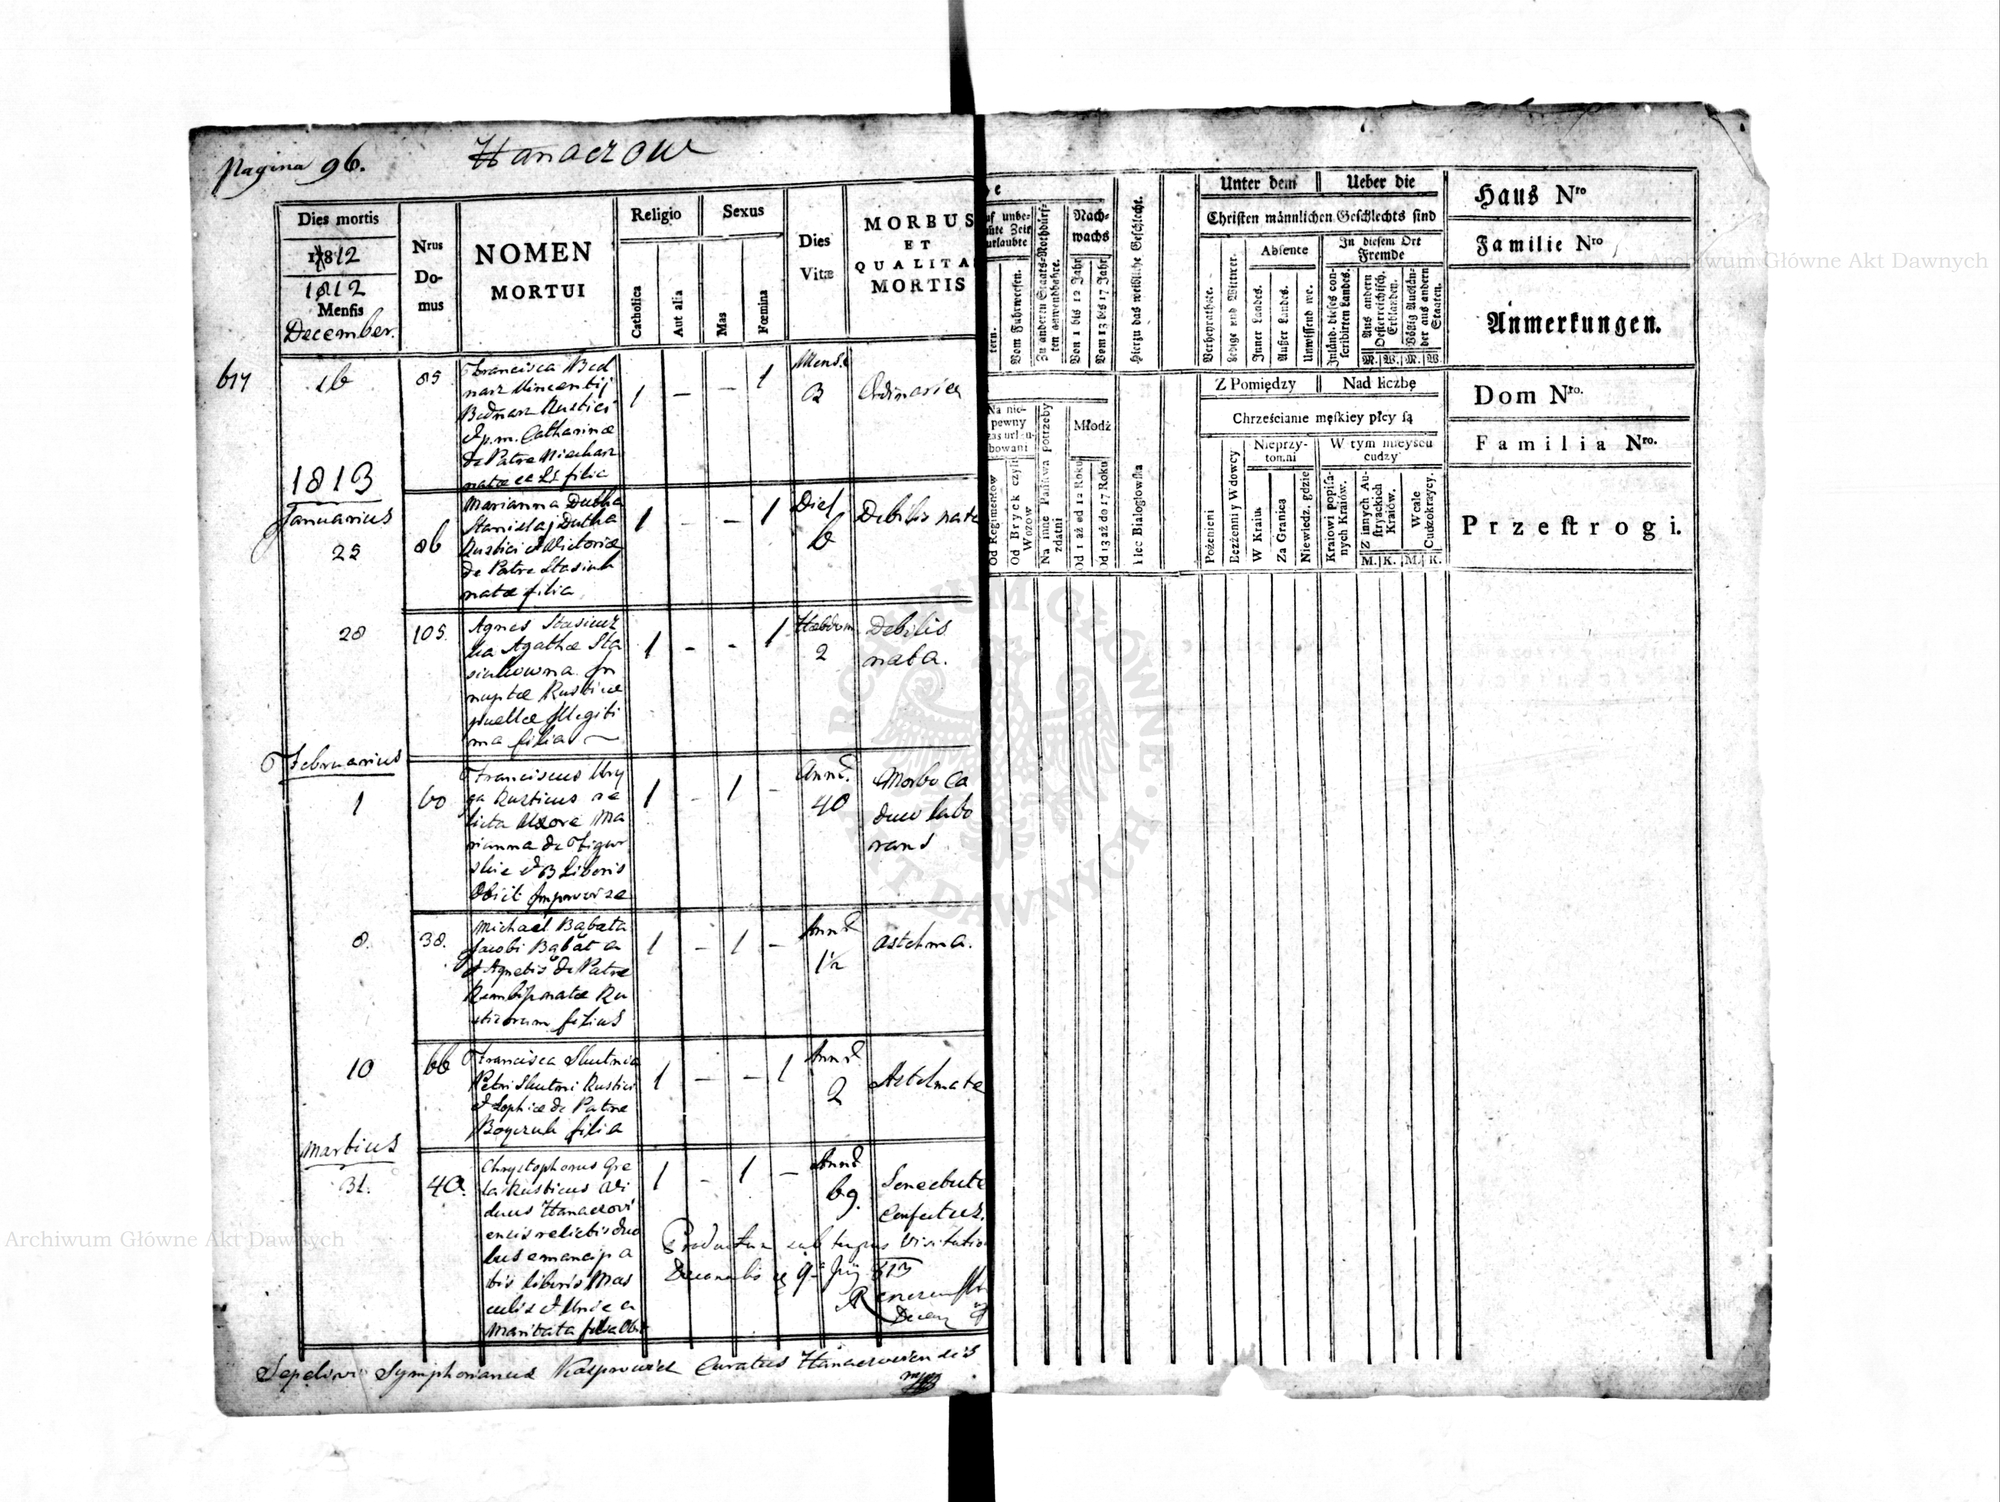 Pagina 96.
Hanaczow
Dies mortis
1812
1812
Mensis
December.
Nrus
Do-
mus
NOMEN
MORTUI
Religio
Catholica
Aut alia
Sexus
Mas
Fœmina
Dies
Vitæ
MORBUS
ET
QUALITA
MORTIS
617
16
85
Francisca Bed
narz Vincentij
Bednarz Rustici
et p.m. Catharinæ
de Patre
natæ filia
1
–
–
1
Mens.
3
Ordinaria
1813
Januarius
25
86
Marianna Dutka
Stanislaj Dutka
Rustici et Victoriæ
de Patre Stasiuk
natæ filia
1
–
–
1
Diet
6
Debilis nata
28
105
Agnes
Agathæ Sta
siukowna In
nuptæ Rusticæ
puellæ Illegiti
ma filia
1
-
-
1
Hebdom
2
Debilis
nata.
Februarius
1
60
Franciscus
Rusticus re
licta Uxore Ma
rianna de
et 3 Liberis
Obiit Improvise
1
-
1
-
Anni.
40
Morbo Ca
duco labo
rans
8.
38.
Michael Babata
Jacobi Babata
et Agnetis de Patre
natæ Ru
sticorum filius
1
-
1
-
Anni
1½
Asthma.
10
66
Francisca Skutnia
Petri Skutni Rustici
et Sophiæ de Patre
filia
1
–
–
1
Anni
2
Martius
31.
40.
Chrystophorus Gre
la Rusticus Vi
duus Hanaczovi
ensis relictis duo
bus emancipa
tis liberis Mas
culis et Unica
Maritata filia Obiit
1
-
1
–
Anni
69.
Senectute
Confectus.
Productum sub tempus Visitation
Decanalis 9 813
Sepelivi Symphorianus Kasprowicz Curatus Hanaczoviensis
uf unbe-
urlaubte
Vom Fuhrwesen.
In anderen Staats-Nothdürf-
ten anwendbare.
Nach-
wachs
Von 1 bis 12 Jahr
Vom 13 bis 17 Jahr
Hierzu das weibliche Geschlecht.
Unter dem
Ueber die
Christen männlichen Geschlechts sind
Verheyrathete.
ledige und Wittwer.
Absente
Inner Landes.
Außer Landes.
Unwissend wo.
In diesem Ort
Fremde
Inländ. dieses con-
scribirten Landes.
Aus andern
Oesterreichisch.
Erblanden.
Völlig Auslän-
der aus andern
Staaten.
M. W. M. W.
Haus Nro
Familie Nro
Anmerkungen.
Na nie-
pewny
czas urlu-
bowani
Od Regimentow
Od Bryck czyli
Wozow
Na inne Panstwa potrzeby
zdatni
Młodź
Od 1 aż do 12 Roku
Od 13 aż do 17 Roku
Płec Białogłowska
Z Pomiędzy
Nad liczbę
Chrześcianie męskiey płcy są
Pożenieni
Bezżenni y Wdowcy
Nieprzy-
tomni
W Kraiu
Za Granica
Niewiedz. gdzie
W tym mieyscu
cudzy
Kraiowi popisa-
nych Kraiów.
Z innych Au-
stryackich
Kraiów.
Wcale
Cudzokraycy.
M. K. M. K.
Dom Nro.
Familia Nro.
Przestrogi.
Archiwum Główne Akt Dawnych
Archiwum Główne Akt Dawnych
ARCHIWUM GŁÓWNE AKT DAWNYCH